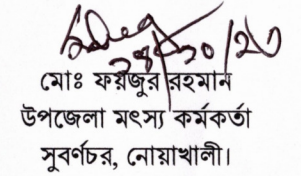 ২৪/১০/২৩
মোঃ ফয়জুর রহমান
উপজেলা মৎস্য কর্মকর্তা
সুবর্ণচর, নোয়াখালী।